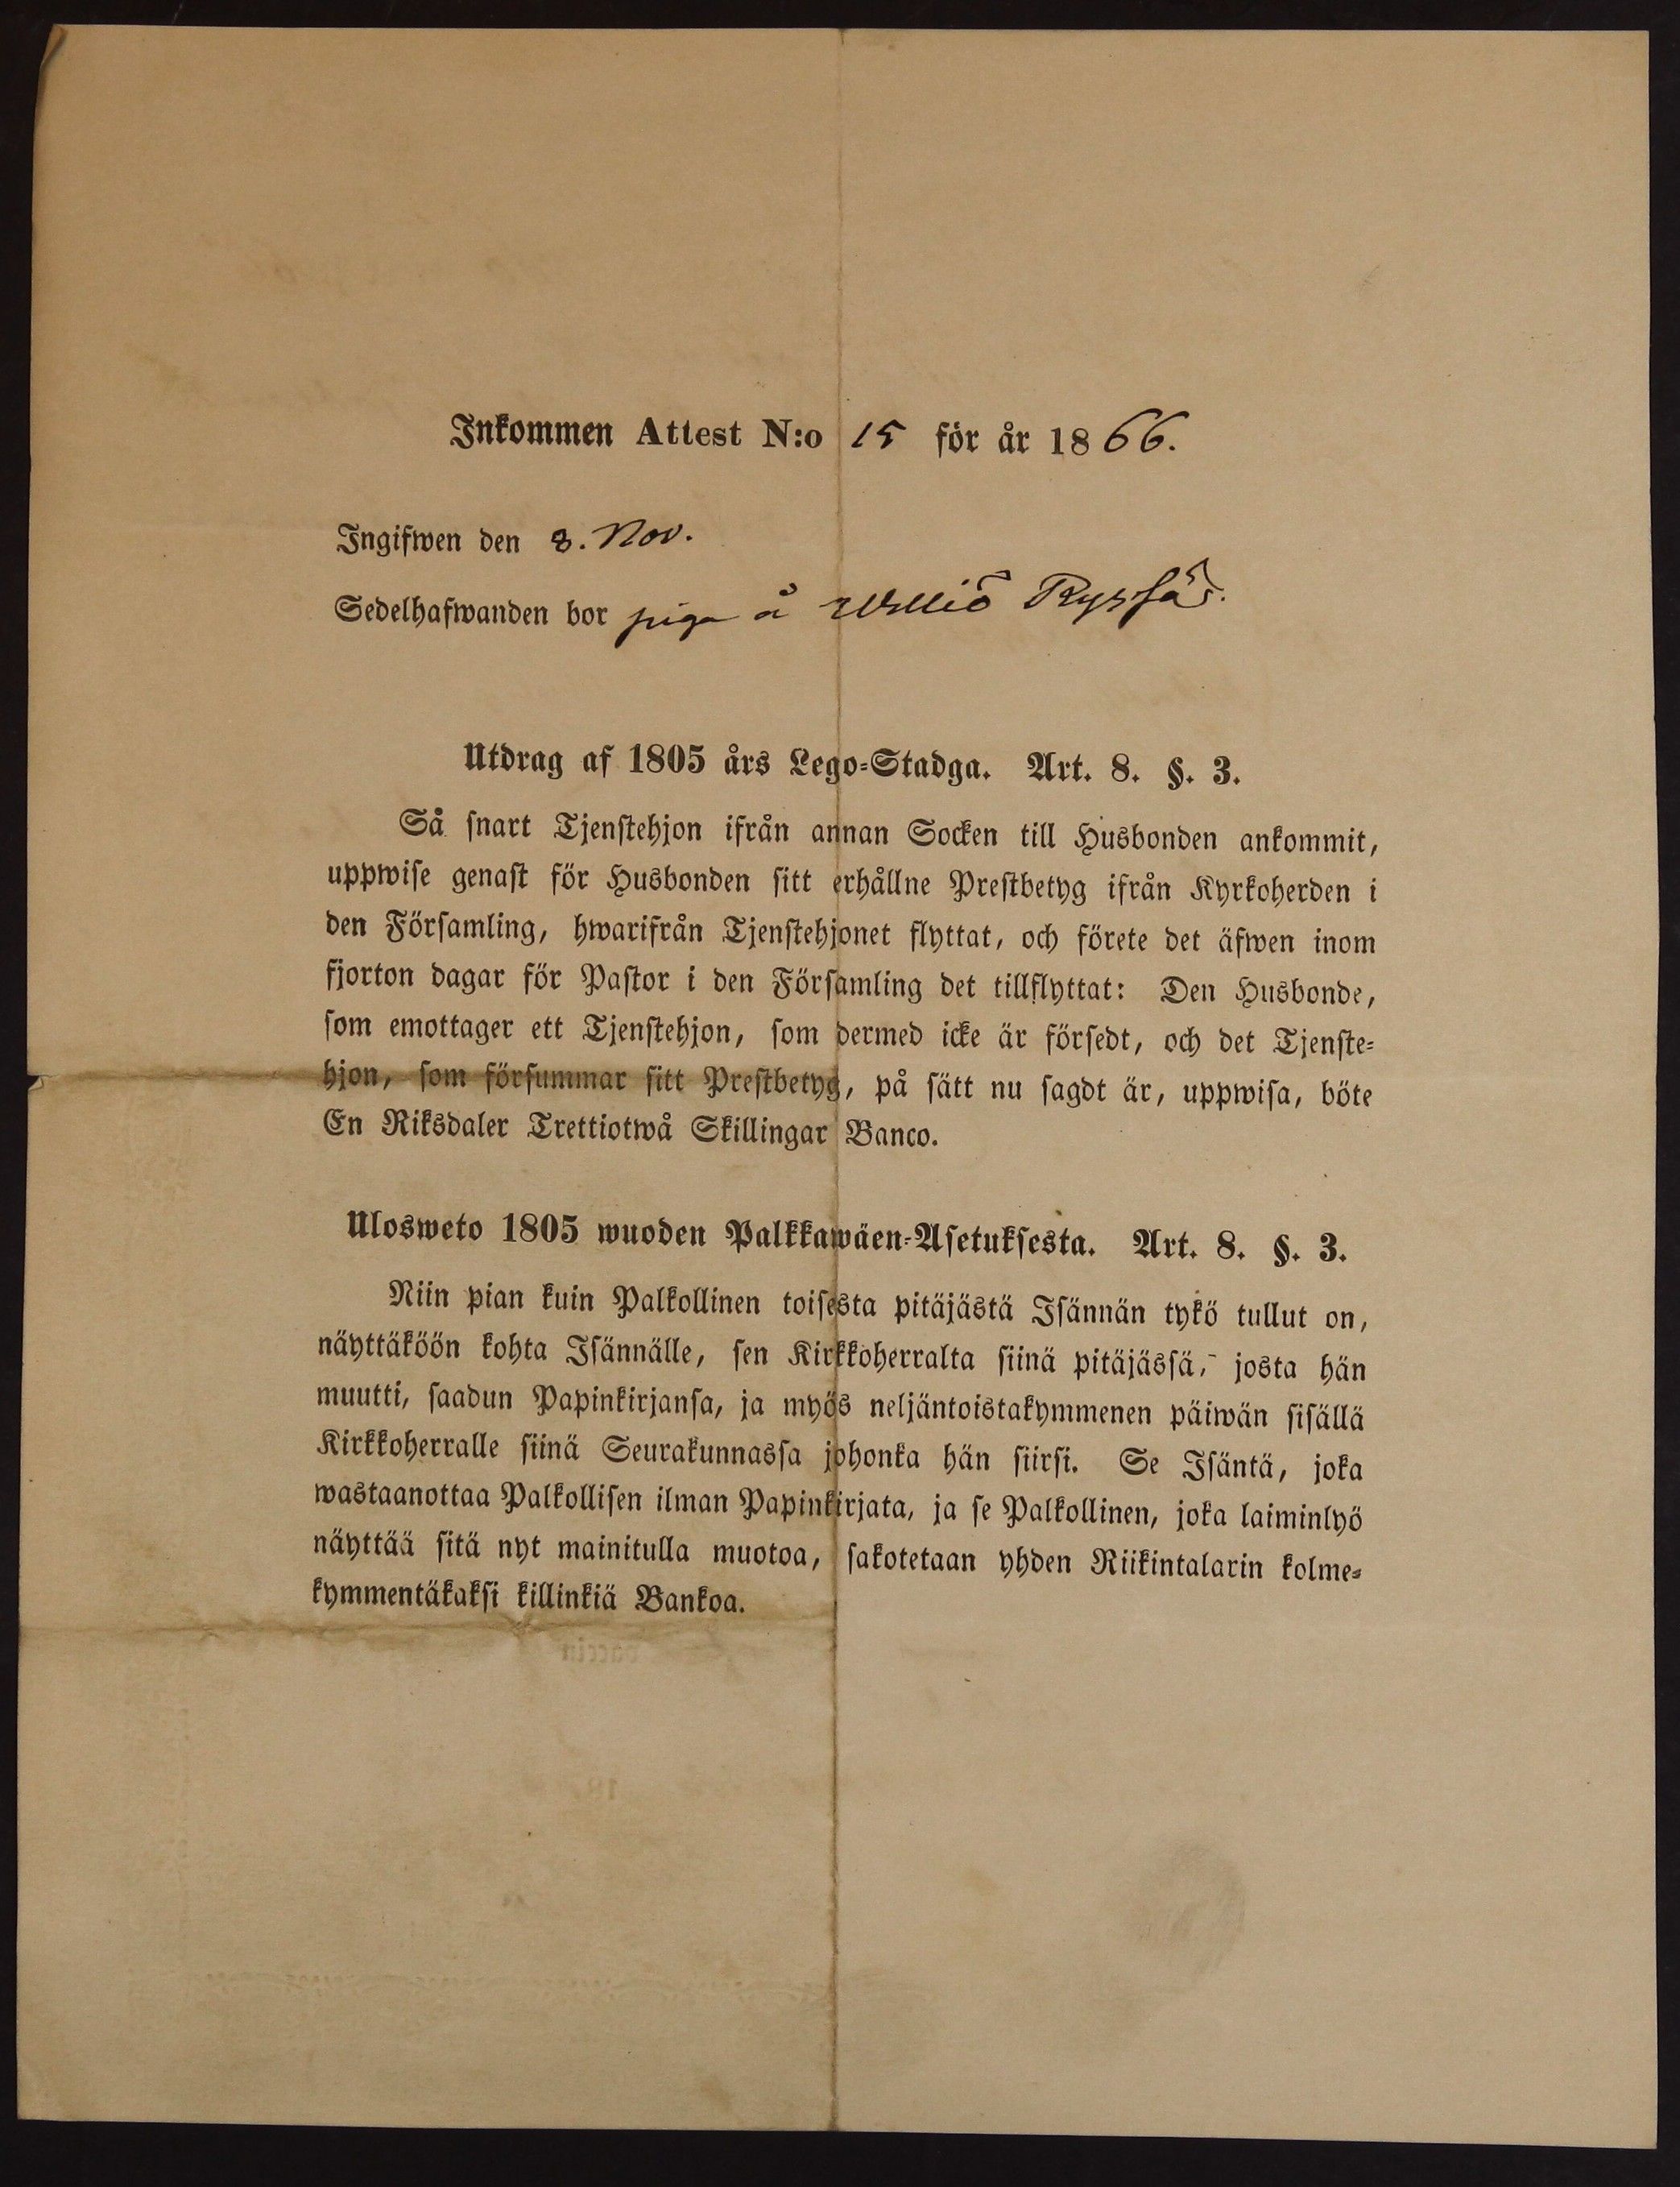 Inkommen Attest N:o 15 för år 1866.
Ingifwen den 8. Nov.
Sedelhafwanden bor piga å
Utdrag af 1805 års Lego-Stadga. Art. 8. §. 3.
Så snart Tjenstehjon ifrån annan Socken till Husbonden ankommit,
uppwise genast för Husbonden sitt erhållne Prestbetyg ifrån Kyrkoherden i
den Församling, hwarifrån Tjenstehjonet flyttat, och förete det äfwen inom
fjorton dagar för Pastor i den Församling det tillflyttat: Den Husbonde,
som emottager ett Tjenstehjon, som dermed icke är försedt, och det Tjenste-
hjon, som försummar sitt Prestbetyg, på sätt nu sagdt är, uppwisa, böte
En Riksdaler Trettiotwå Skillingar Banco.
Ulosweto 1805 wuoden Palkkawäen-Asetuksesta. Art. 8. §. 3.
Niin pian kuin Palkollinen toisesta pitäjästä Isännän tykö tullut on,
näyttäköön kohta Isännälle, sen Kirkkoherralta siinä pitäjässä, josta hän
muutti, saadun Papinkirjansa, ja myös neljäntoistakymmenen päiwän sisällä
Kirkkoherralle siinä Seurakunnassa johonka hän siirsi. Se Isäntä, joka
wastaanottaa Palkollisen ilman Papinkirjata, ja se Palkollinen, joka laiminlyö
näyttää sitä nyt mainitulla muotoa, sakotetaan yhden Riikintalarin kolme-
kymmentäkaksi killinkiä Bankoa.